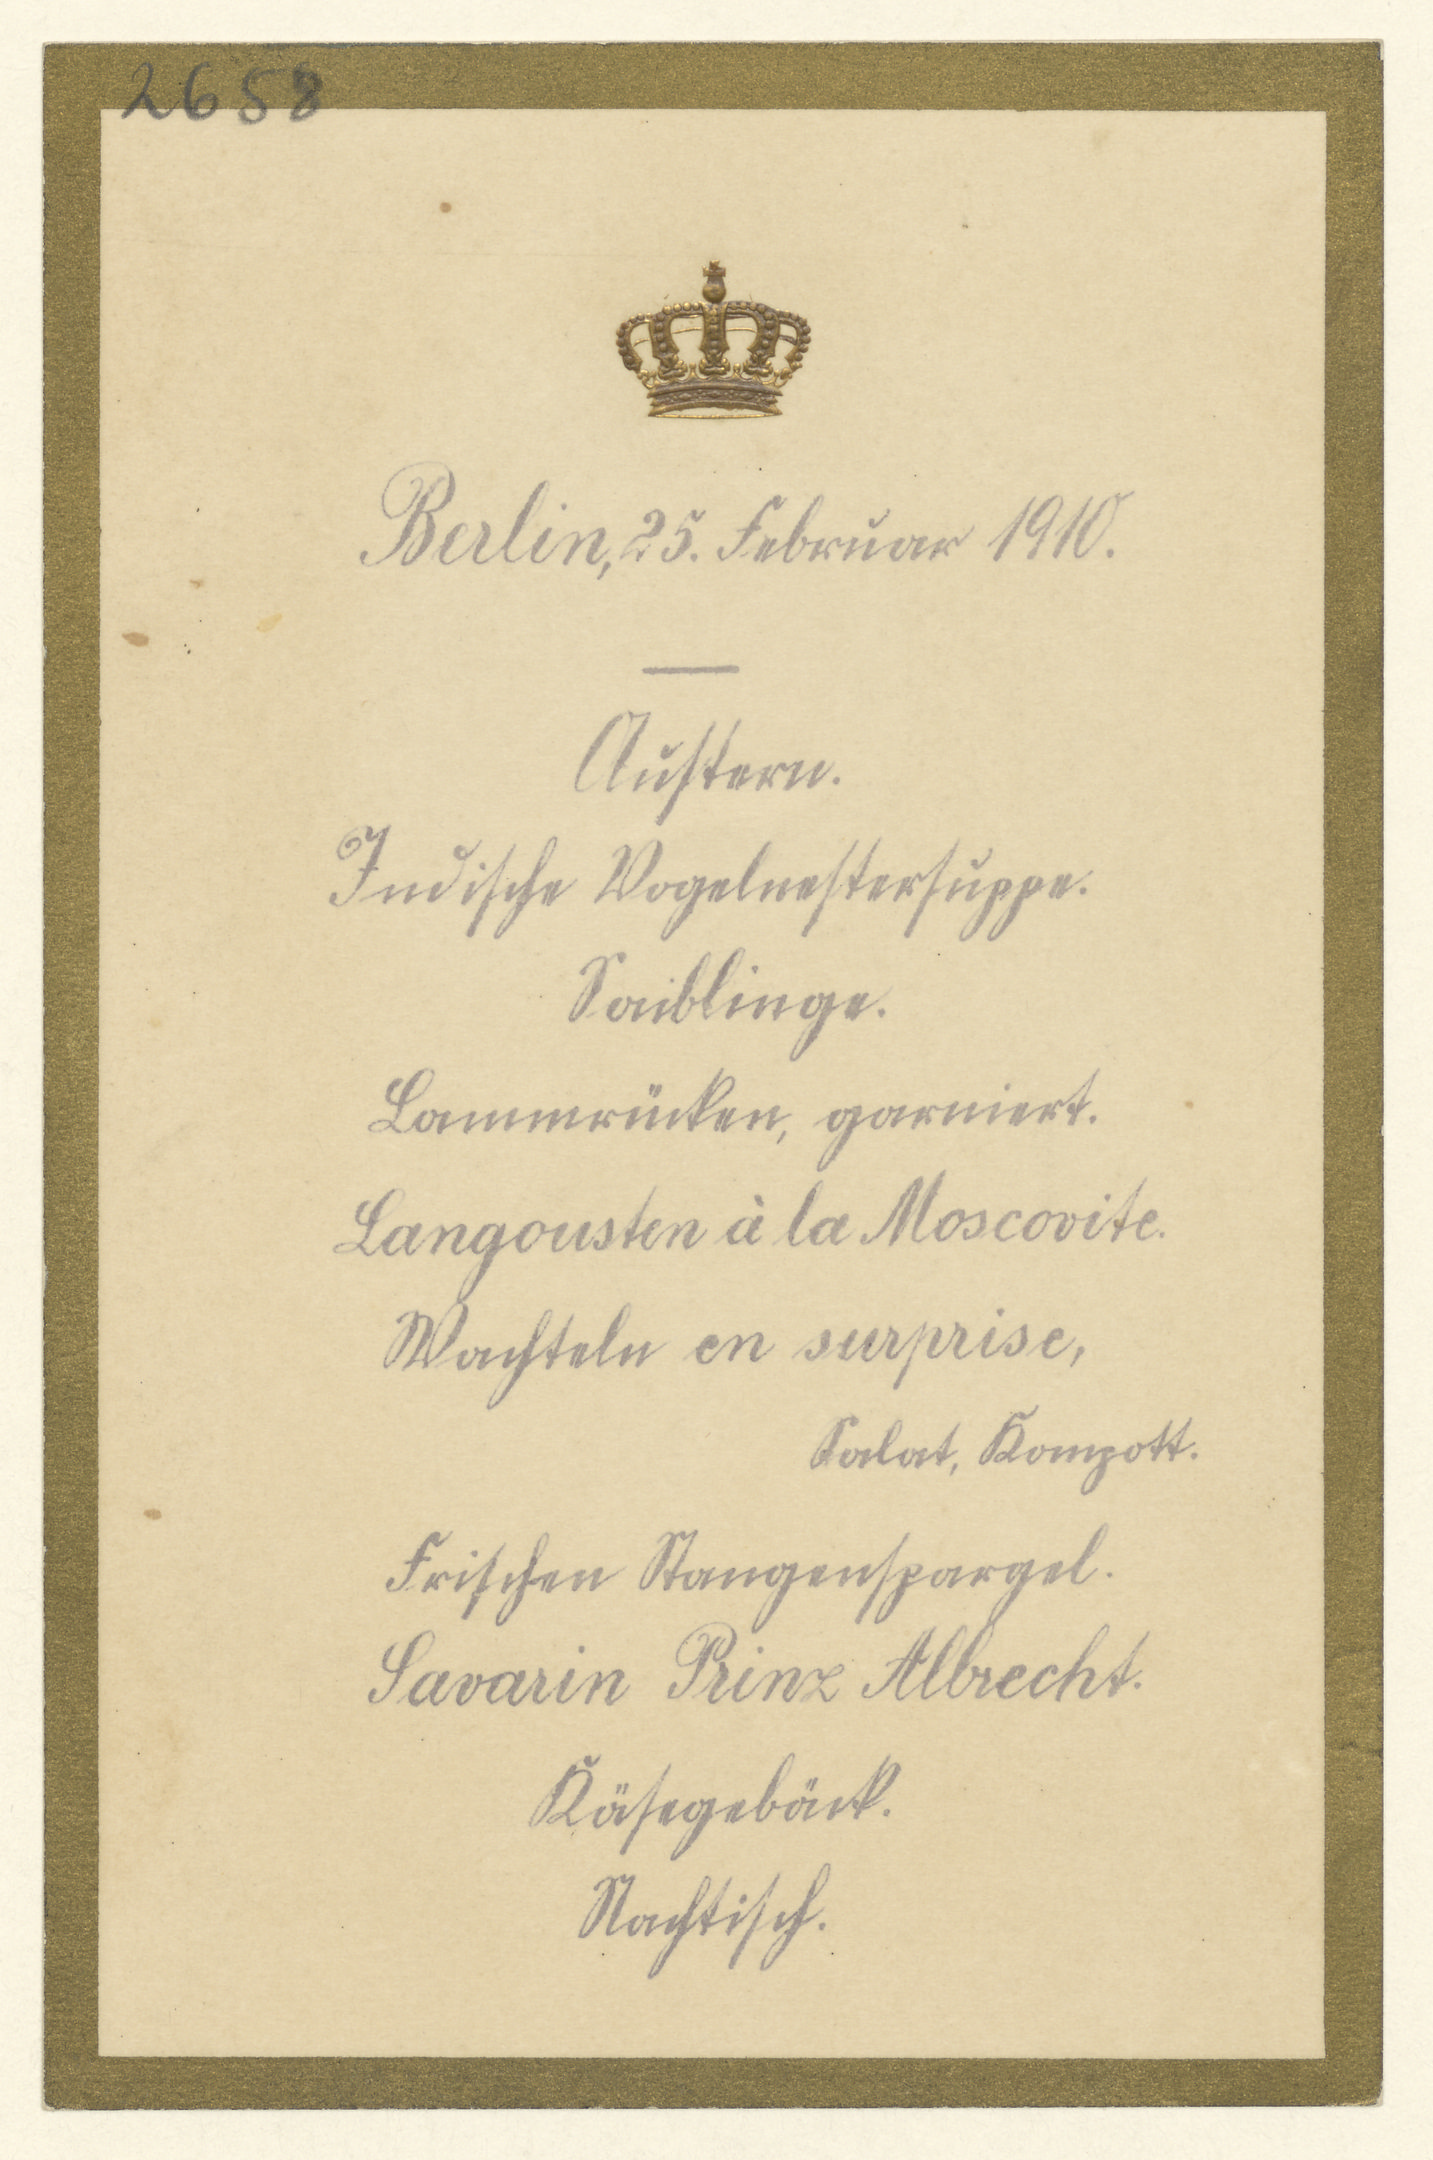 2658
Berlin, 25. Februar 1910.
Austern.
Indische Vogelnestersuppe.
Saiblinge.
Lammrücken, garniert.
Langousten à la Moscovite.
Wachteln en surprise,
Salat, Kompott.
Frischen Stangenspargel.
Savarin Prinz Albrecht.
Käsegebäck.
Nachtisch.